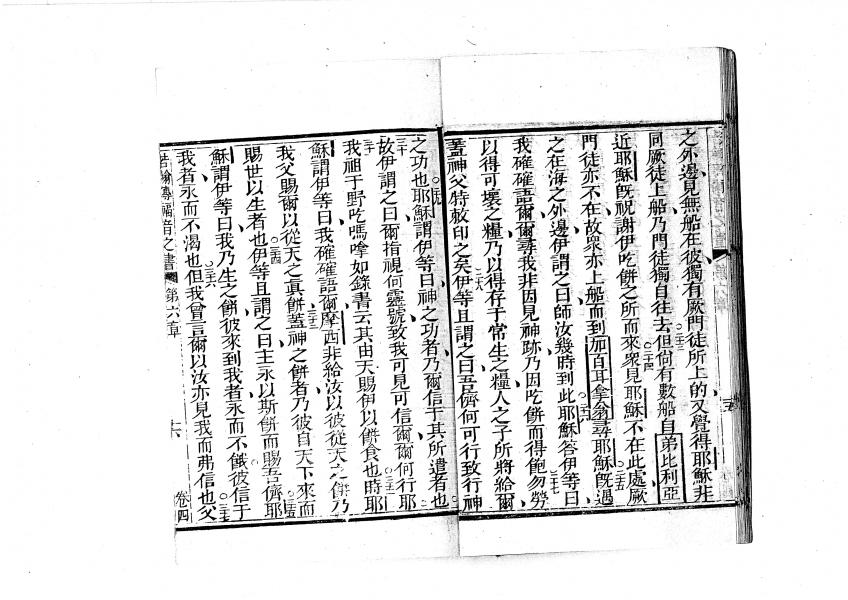 之外邊見無船在彼獨有厥門徒所上的又覺得耶穌非
同厥徒上船乃門徒獨自往去○二十三但尙有數船自弟比利亞
近耶穌旣祝謝伊吃餅之所而來○二十四衆見耶穌不在此處厥
門徒亦不在故衆亦上船而到加百耳拿翁尋耶穌○二十五旣遇
之在海之外邊伊謂之曰師汝幾時到此○二十六耶穌答伊等曰
我確確語爾爾尋我非因見神跡乃因吃餅而得飽○二十七勿勞
以得可壞之糧乃以得存于常生之糧人之子所將給爾
蓋神父特敕印之矣○二十八伊等且謂之曰吾儕何可行致行神
之功也○二十九耶穌謂伊等曰神之功者乃爾信于其所遣者也
○三十故伊謂之曰爾指視何靈號致我可見可信爾爾何行耶
○三十一我祖于野吃嗎嗱如錄書云其由天賜伊以餅食也○三十二時耶
穌謂伊等曰我確確語爾摩西非給汝以彼從天之餅乃
我父賜爾以從天之眞餅○三十三蓋神之餅者乃彼自天下來而
賜世以生者也○三十四伊等且謂之曰主永以斯餅而賜吾儕○三十五耶
穌謂伊等曰我乃生之餅彼來到我者永而不餓彼信于
我者永而不渴也○三十六但我曾言爾以汝亦見我而弗信也○三十七父
若翰傳福音之書 第六章 十六 卷四